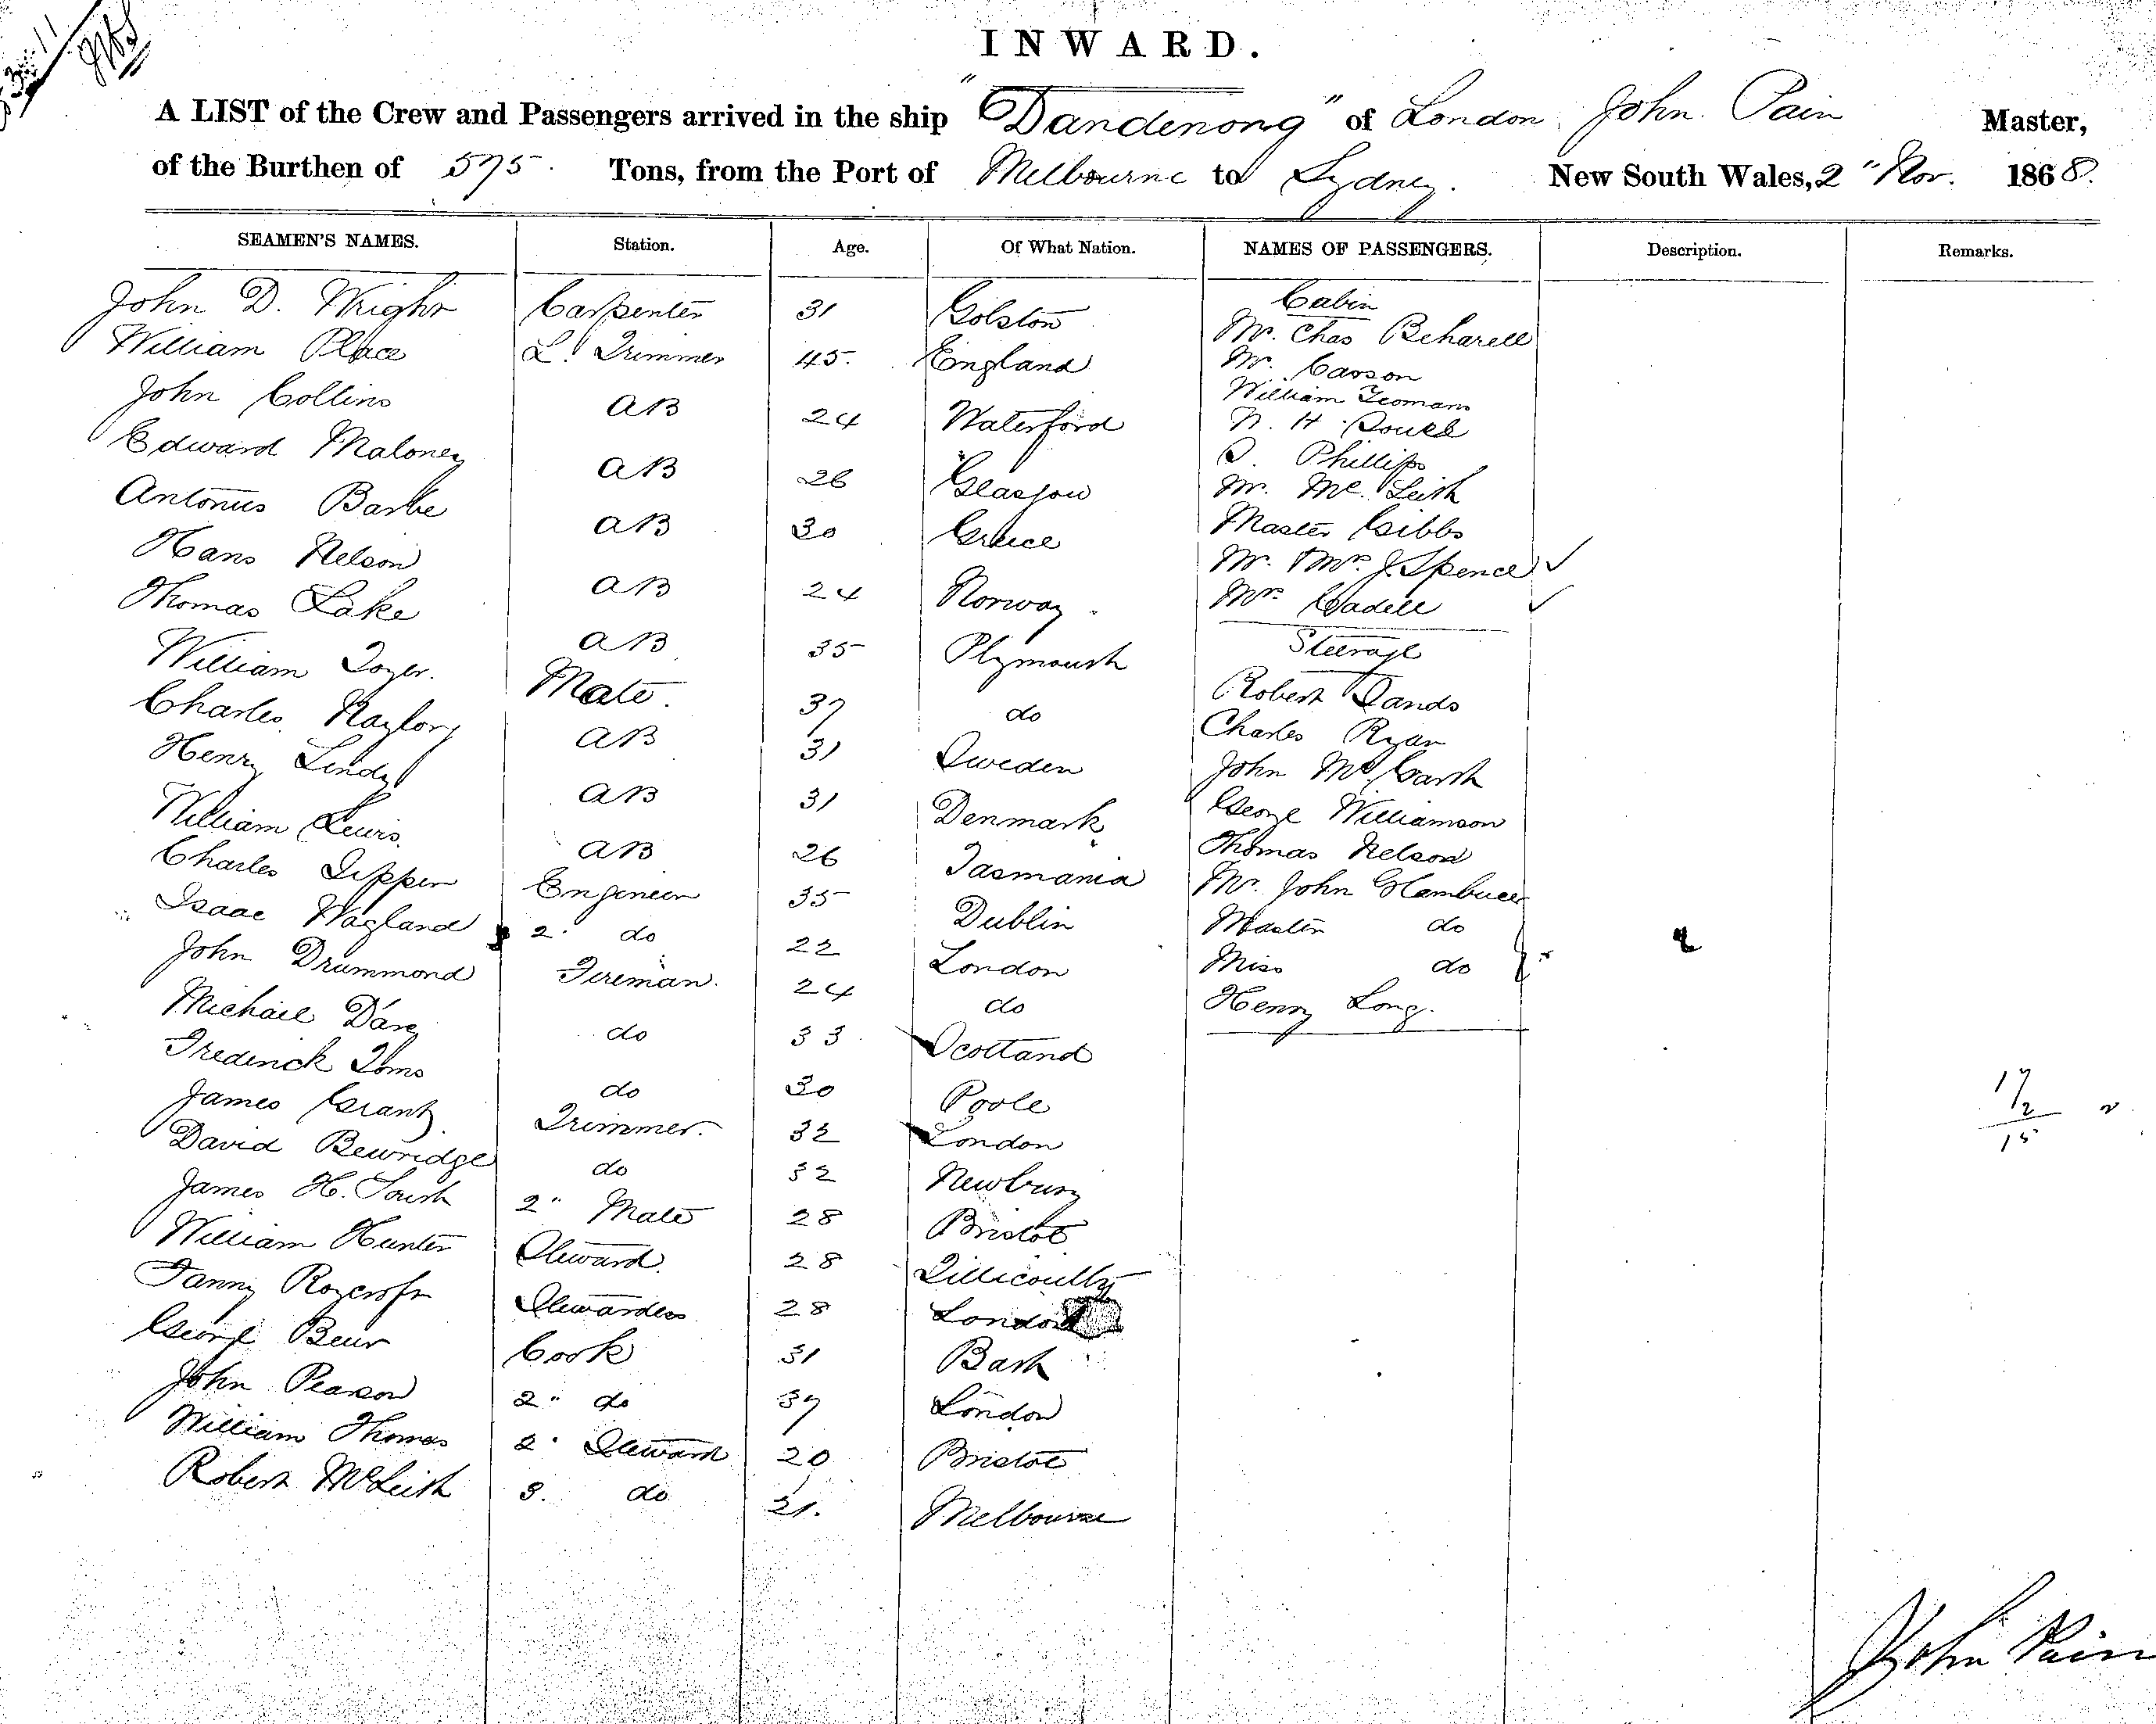 INWARD.
A LIST of the Crew and Passengers arrived in the ship "Dandenong" of London John Pain Master,
of the Burthen of 595 Tons, from the Port of Melbourne to Sydney. New South Wales, 2" Nov. 1868.
SEAMEN'S NAMES. Station. Age. Of What Nation. NAMES OF PASSENGERS. Description. Remarks.
John D. Wright Carpenter 31 Golston Cabin
William Place L. Trimmer 45. England Mr. Chas Beharell
John Collins AB 24 Waterford Mr. Carson
Edward Maloney AB 26 Glasgow William Yeomans
Antonius Barbe AB 30 Greece N. H.
Hans Nelson AB 24 Norway. S. Phillips
Thomas Lake AB 35 Plymouth Mr. Mc.Leith
William Tozer. Mate. 37 do Master Gibbs
Charles Naylor AB 31 Sweden Mr. & Mrs. J. Spence
Henry Lindy AB 31 Denmark Mrs Cadell
William Lewis. AB 26 Tasmania Steerage
Charles Tippen Engineer 35 Dublin Robert Sands
Isaac Wagland 2. do 22 London Charles Ryan
John Drummond Fireman. 24 do John McGarth
Michael Darcy do 33 Scotland George Williamson
Frederick Toms do 30 Poole Thomas Nelson
James Grant Trimmer. 32 London Mr. John
David Bewridge do 32 Newbury Master do
James H. South 2" Mate 28 Bristol Miss do
William Hunter Steward. 28 Tillicoultry Henry Long.
Fanny Roycroft Stewardess 28 London
George Beur Cook 31 Bath
John Pearson 2" do 37 London
William Thomas 2. Steward 20 Bristol
Robert McLeith 3. do 21. Melbourne
17
2
15
John Pain